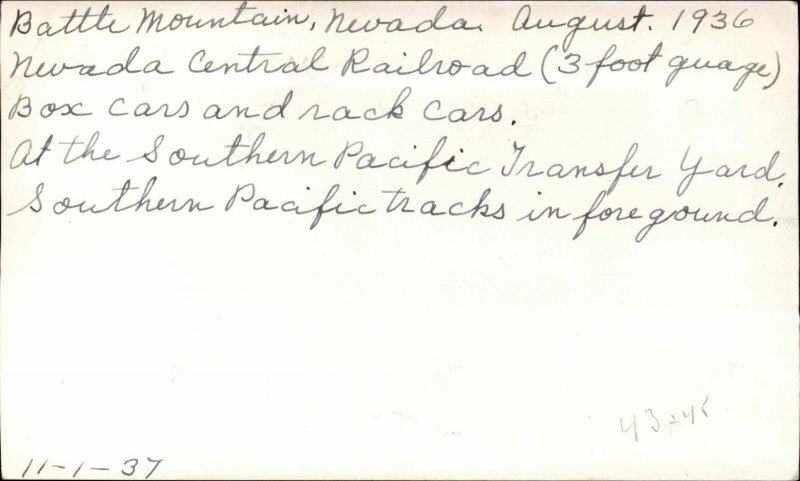 Battle Mountain, Nevada. August. 1936
Nevada Central Railroad (3 foot guage)
Box cars and rack cars.
At the Southern Pacific Transfer Yard.
Southern Pacific tracks in foregound.
11-1-37